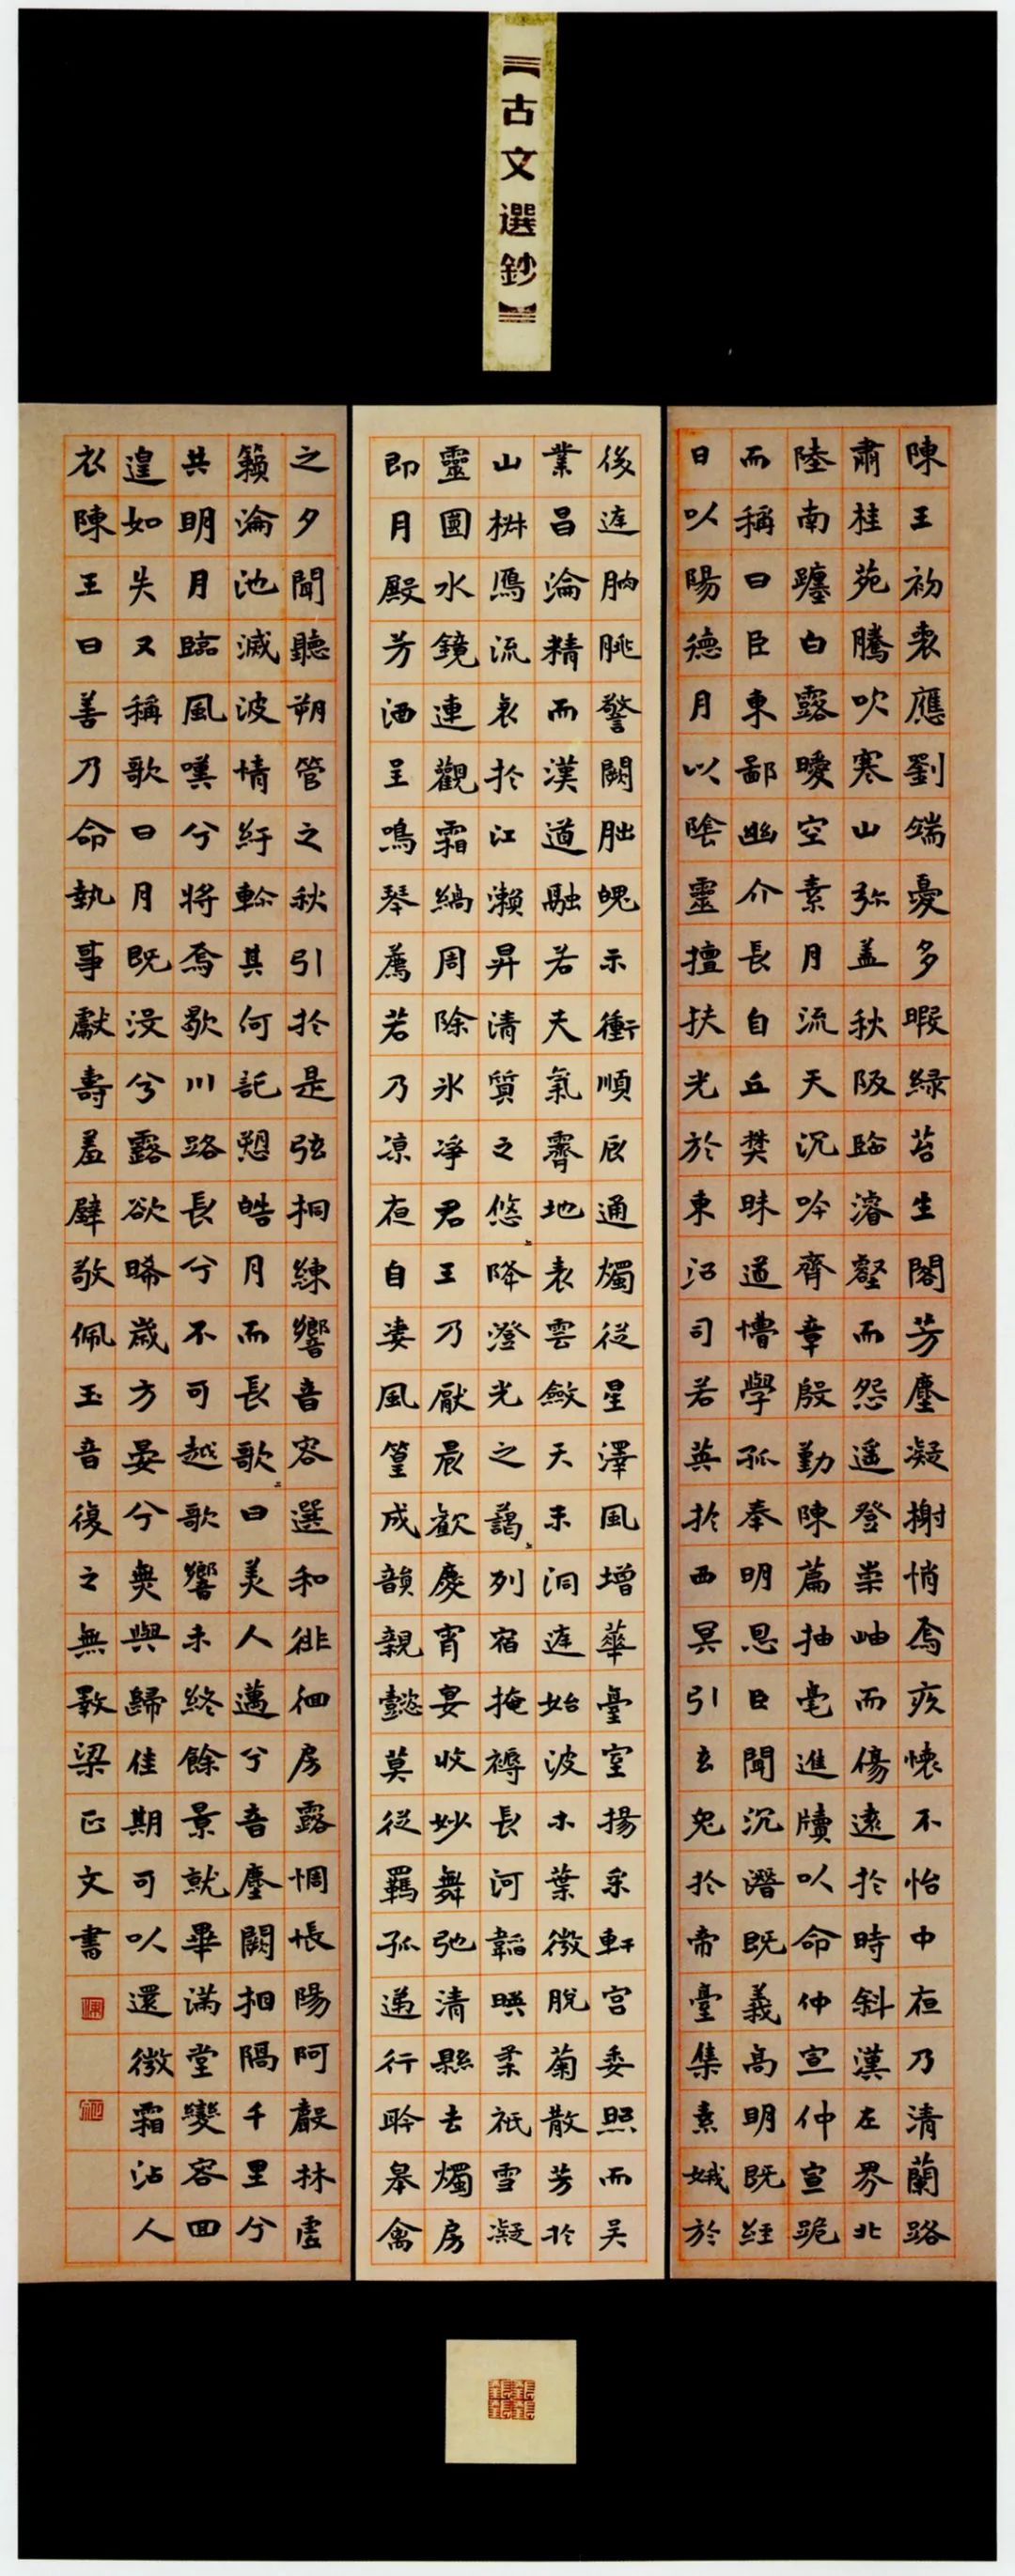 【古文選鈔】
陳王初喪應劉端憂多暇緑苔生閣芳塵凝榭悄焉疚懷不怡中夜乃清蘭路
肅桂苑騰吹寒山弥盖秋阪臨濬壑而怨遥登崇岫而傷遠於時斜漢左界北
陸南躔白露曖空素月流天沉吟齊章殷勤陳篇抽毫進牘以命仲宣仲宣跪
而稱曰臣東鄙幽介長自丘樊昧道懵學孤奉明恩臣聞沉潛既義高明既經
日以陽德月以陰靈擅扶光於東沼司若英於西冥引玄兔於帝臺集素娥於
後庭朒脁警闕朏魄示衝順辰通燭從星澤風增華臺室揚采軒宮委照而吳
業昌淪精而漢道融若夫氣霽地表雲斂天末洞庭始波木葉微脫菊散芳於
山椒鴈流哀於江瀨昇清質之悠〻降澄光之藹〻列宿掩褥長河韜暎柔祇雪凝
靈圓水鏡連觀霜縞周除氷凈君王乃厭晨歡慶宵宴收妙舞弛清縣去燭房
即月殿芳酒呈鳴琴薦若乃凉夜自凄風篁成韻親懿莫從羈孤递行聆皋禽
之夕聞聽朔管之秋引於是弦桐練響音容選和徘徊房露惆悵陽阿聲林虛
籟淪池滅波情紆軫其何託愬皓月而長歌〻曰美人邁兮音塵闕相隔千里兮
共明月臨風嘆兮將焉歇川路長兮不可越歌響未終餘景就畢滿堂變容回
遑如失又稱歌曰月既没兮露欲晞歲方晏兮無與歸佳期可以還微霜沾人
衣陳王曰善乃命執事獻壽羞璧敬佩玉音復之無斁梁正文書